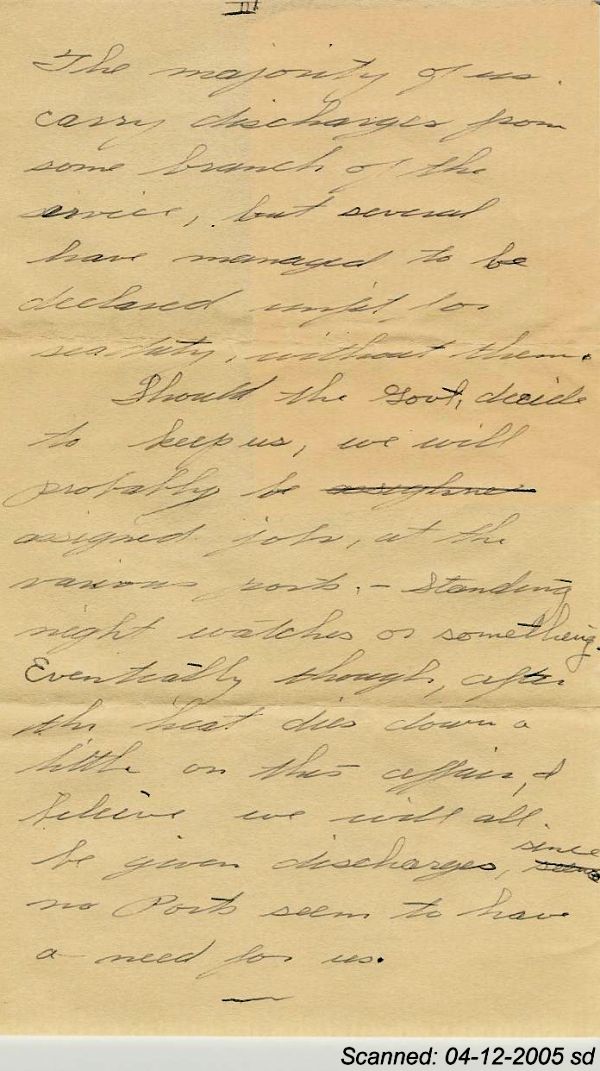 III
The majority of us
carry discharges from
some branch of the
service, but several
have managed to be
declared unfit for
sea duty, without them.
Should the Govt, decide
to keep us, we will
probably be
assigned jobs, at the
various ports. - Standing
night watches or something.
Eventually though, after
the heat dies down a
little on this affair, I
believe we will all
be given discharges, since
no Ports seem to have
a need for us.
Scanned: 04-12-2005 sd